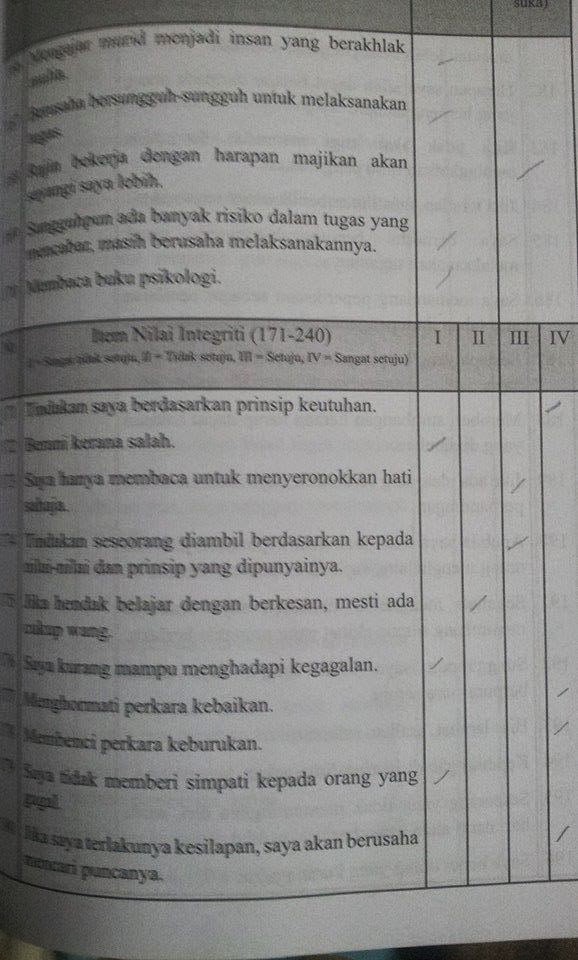 suka)
Mengajar murid menjadi insan yang berakhlak
mulia.
Berusaha bersungguh-sungguh untuk melaksanakan
tugas.
Rajin bekerja dengan harapan majikan akan
sayangi saya lebih.
Sungguhpun ada banyak risiko dalam tugas yang
mencabar, masih berusaha melaksanakannya.
Membaca buku psikologi.
Item Nilai Integriti (171-240) I II III IV
I = Sangat tidak setuju, II = Tidak setuju, III = Setuju, IV = Sangat setuju)
Tindakan saya berdasarkan prinsip keutuhan.
Berani kerana salah.
Saya hanya membaca untuk menyeronokkan hati
sahaja.
Tindakan seseorang diambil berdasarkan kepada
nilai-nilai dan prinsip yang dipunyainya.
Jika hendak belajar dengan berkesan, mesti ada
cukup wang.
Saya kurang mampu menghadapi kegagalan.
Menghormati perkara kebaikan.
Membenci perkara keburukan.
Saya tidak memberi simpati kepada orang yang
gagal.
Jika saya terlakunya kesilapan, saya akan berusaha
mencari puncanya.